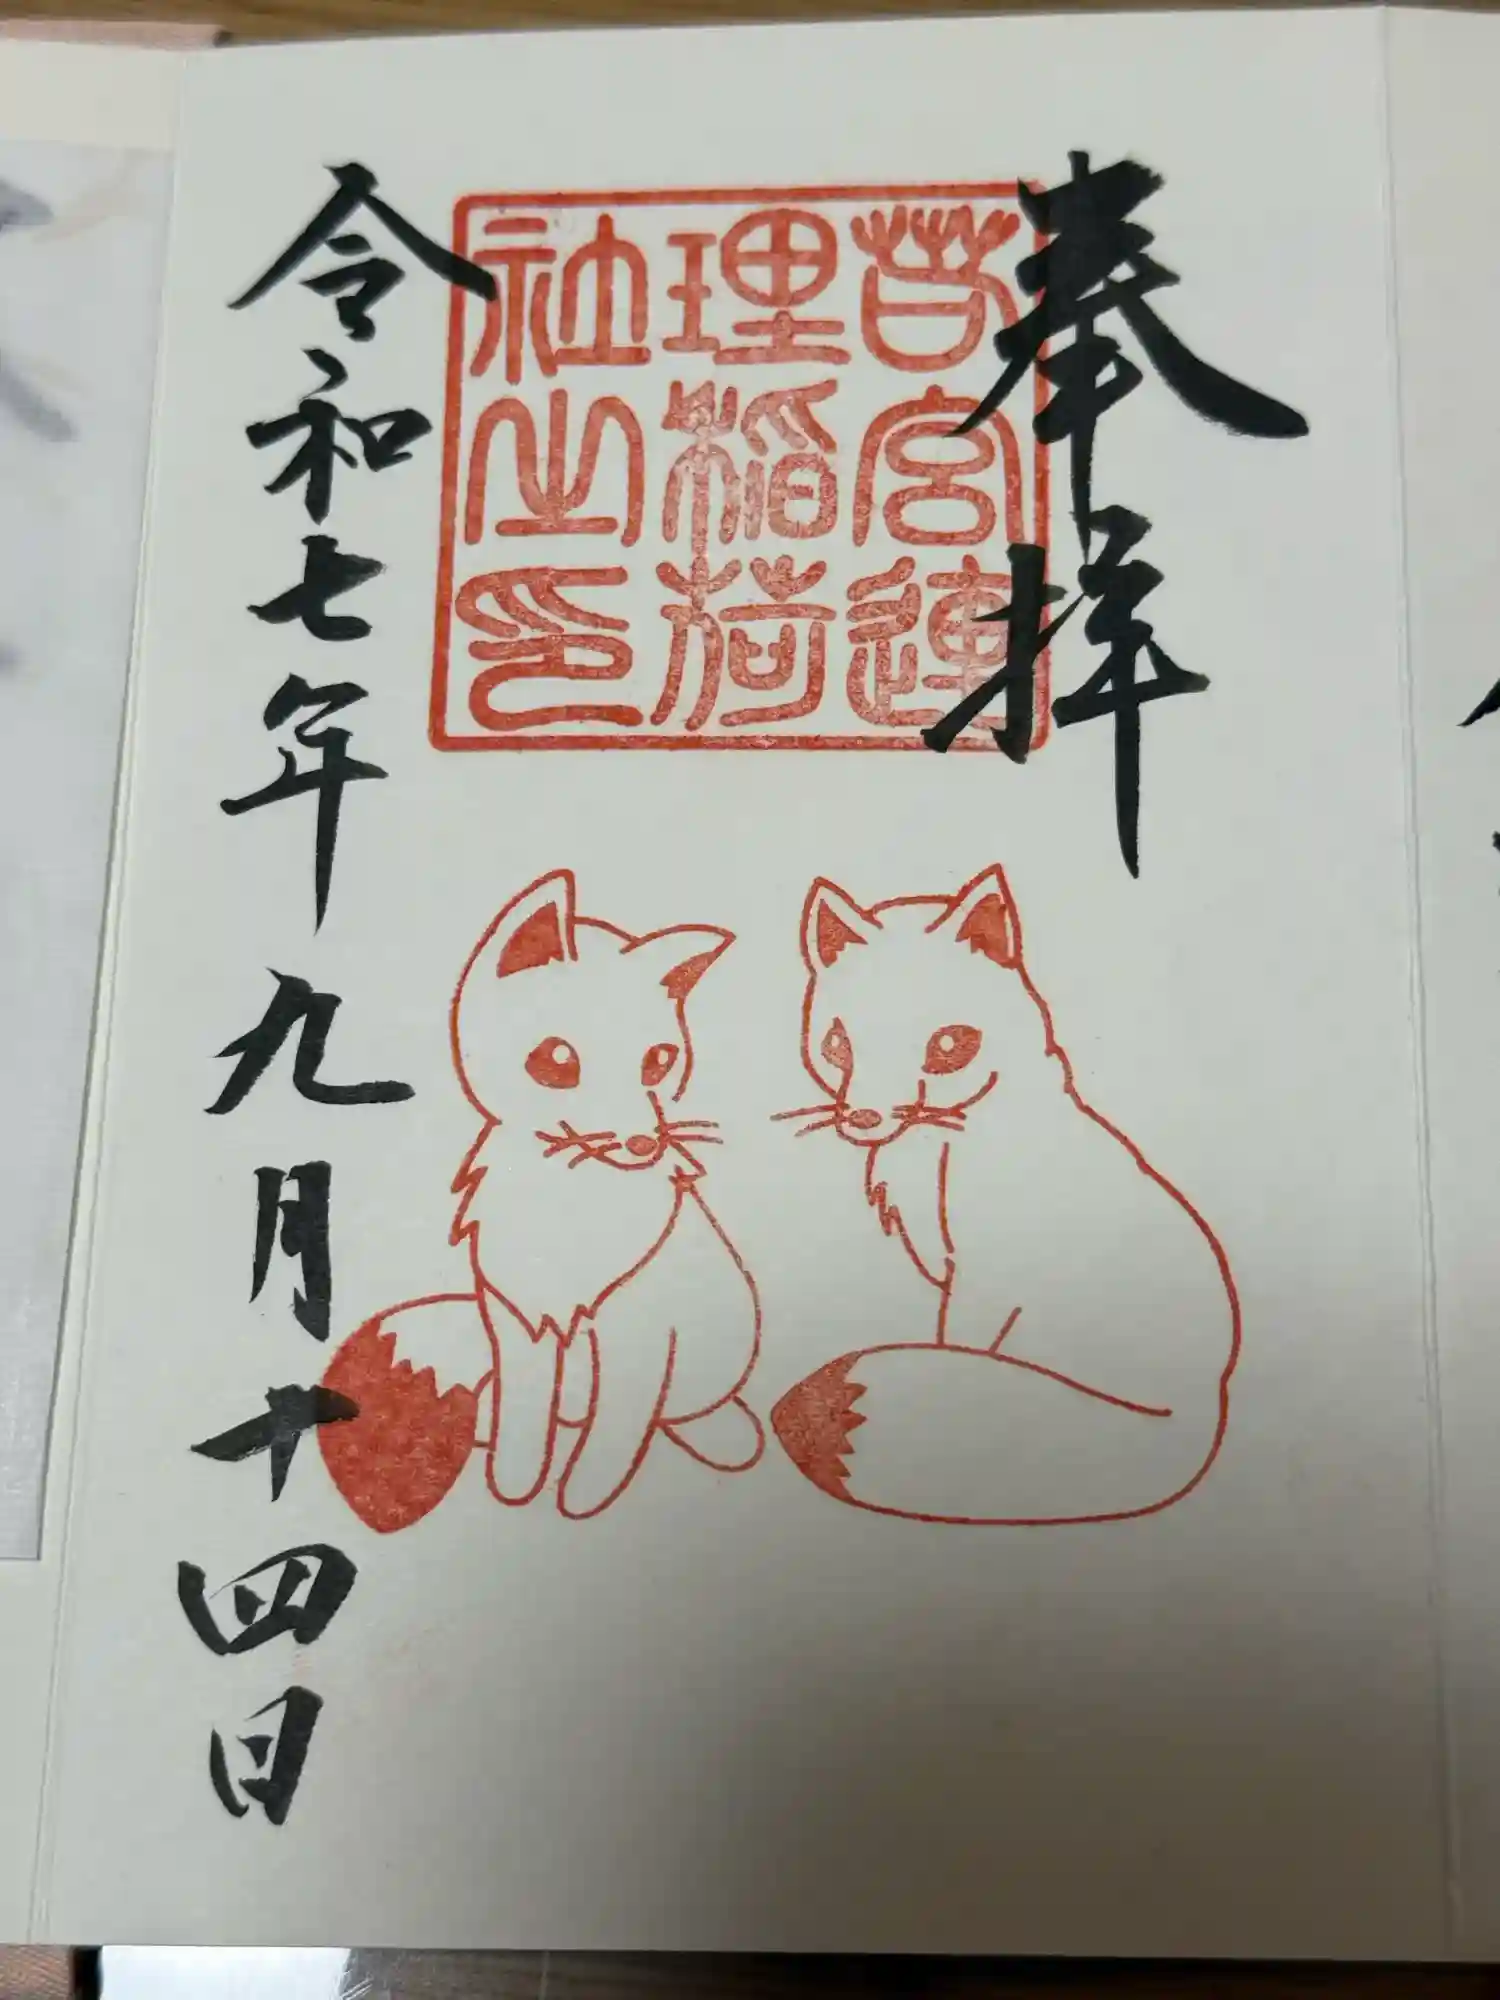 奉拝
若宮連
理稲荷
社之印
令和七年九月十四日